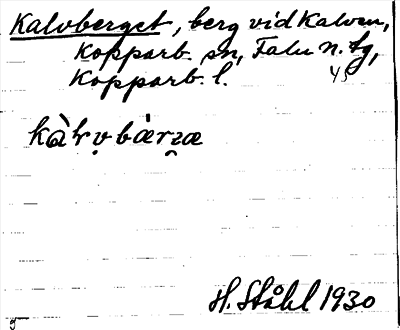 Kalvberget, berg vid Kalven,
Kopparb. sn, Falu n. tg,
Kopparb. l.
H. Ståhl 1930